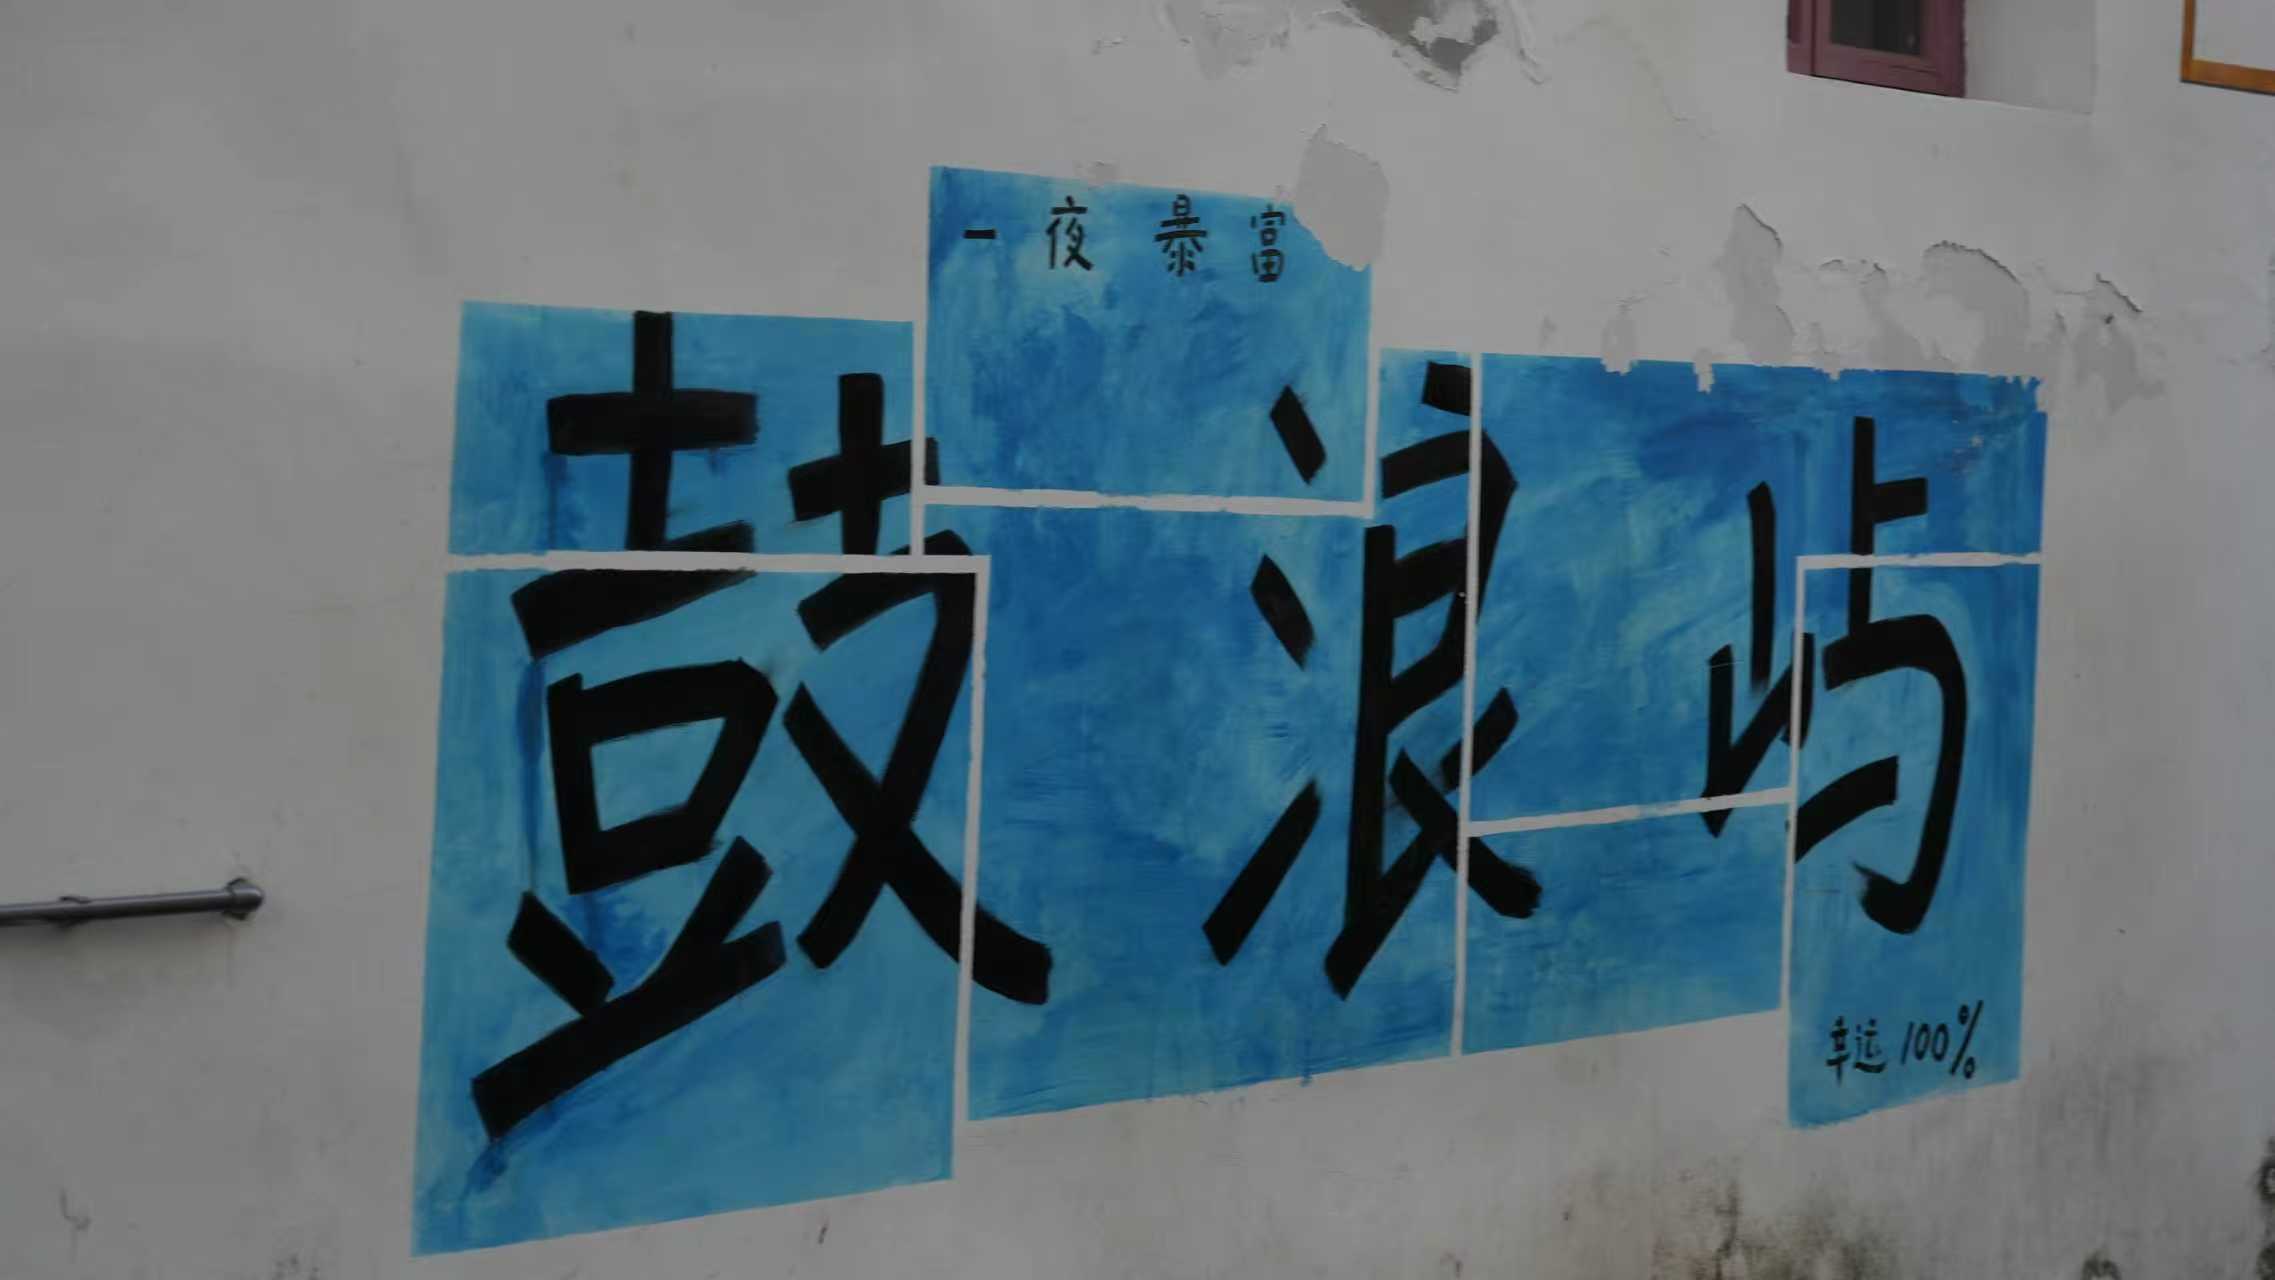 一夜暴富
鼓浪屿
幸运100%